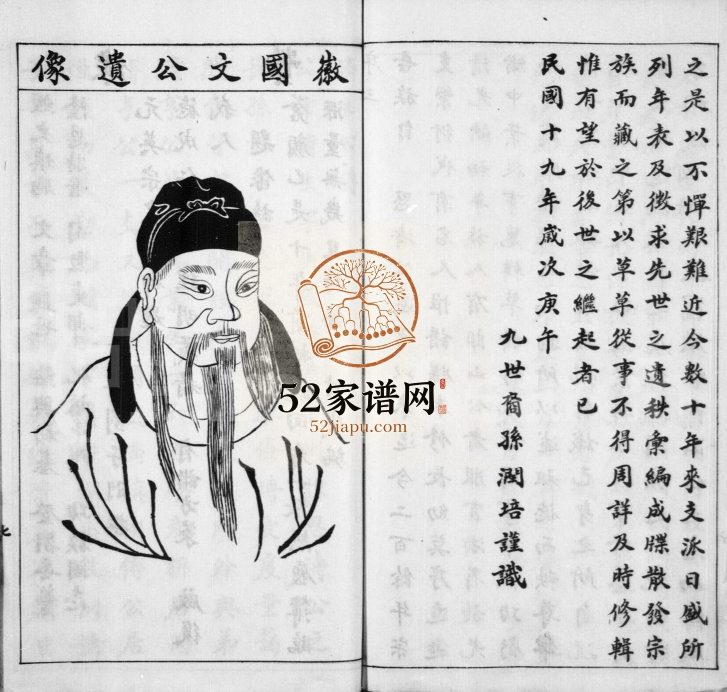 之是以不憚艱難近今數十年來支派日盛所
列年表及徴求先世之遺秩彙編成牒散發宗
族而藏之第以草草從事不得周詳及時修輯
惟有望於後世之繼起者已
民國十九年歲次庚午
九世裔孫潤培謹識
徽國文公遺像
七
52家谱网
52jiapu.com